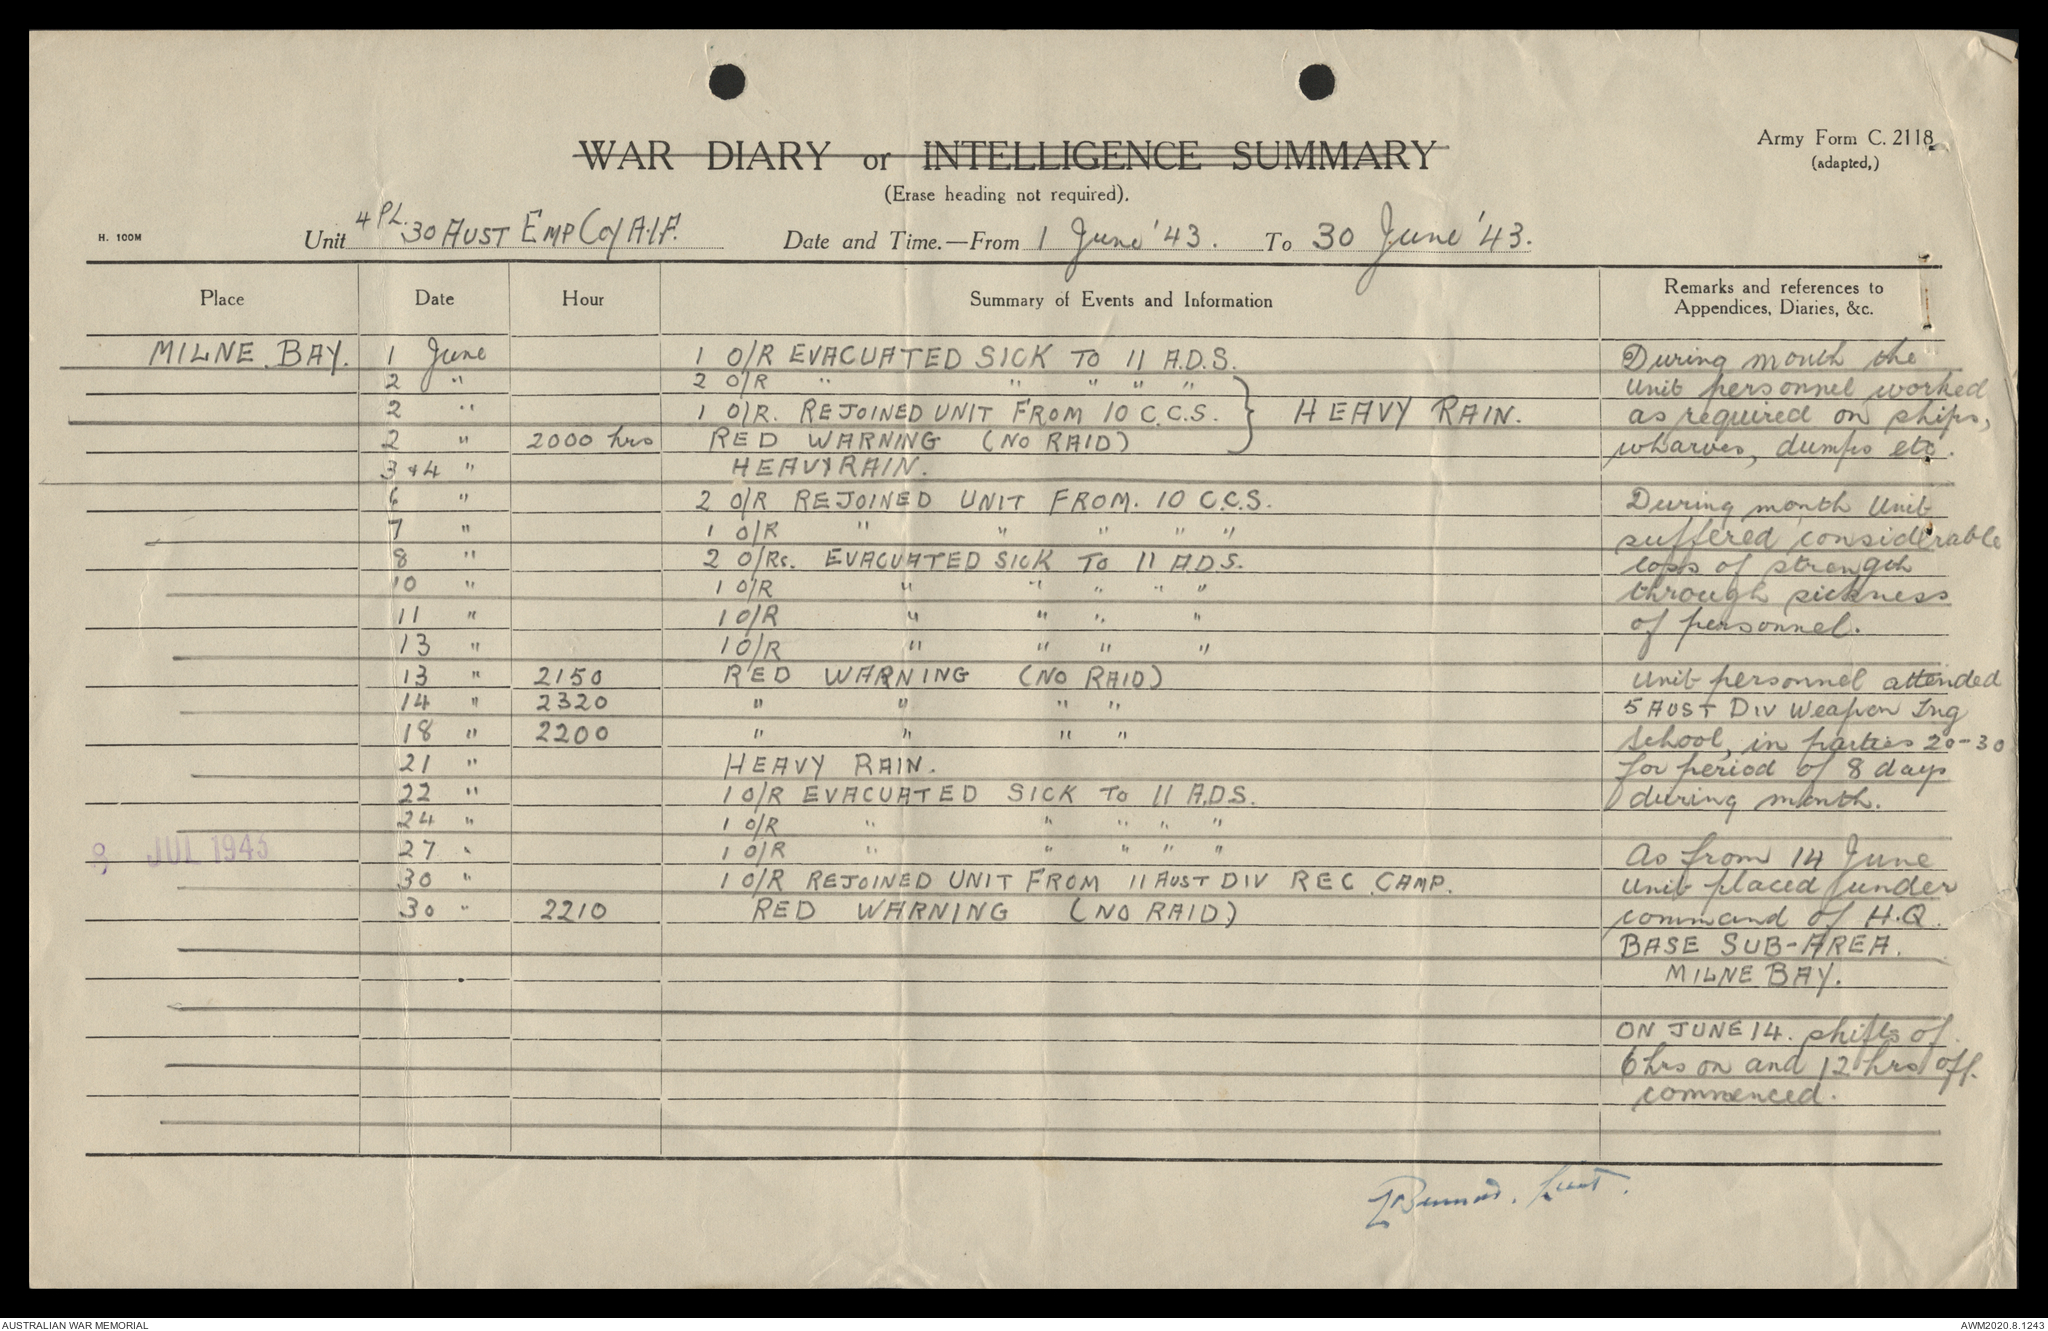 Army Form C. 2118
(adapted,)
WAR DIARY or INTELLIGENCE SUMMARY
(Erase heading not required).
H. 100M
Unit 4 PL. 30 AUST EMP Coy A.I.F. Date and Time.—From 1 June '43. To 30 June '43.
Place Date Hour Summary of Events and Information Remarks and references to Appendices, Diaries, &c.
MILNE BAY. 1 June 1 O/R EVACUATED SICK TO 11 A.D.S.
2 " 2 O/R " " " " "
2 " 1 O/R. REJOINED UNIT FROM 10 C.C.S. } HEAVY RAIN.
2 " 2000 hrs RED WARNING (NO RAID)
3 & 4 " HEAVY RAIN.
6 " 2 O/R REJOINED UNIT FROM. 10 C.C.S.
7 " 1 O/R " " " " "
8 " 2 O/Rs. EVACUATED SICK TO 11 A.D.S.
10 " 1 O/R " " " " "
11 " 1 O/R " " " "
13 " 1 O/R " " " "
13 " 2150 RED WARNING (NO RAID)
14 " 2320 " " " "
18 " 2200 " " " "
21 " HEAVY RAIN.
22 " 1 O/R EVACUATED SICK TO 11 A.D.S.
24 " 1 O/R " " " " "
27 " 1 O/R " " " " "
30 " 1 O/R REJOINED UNIT FROM 11 AUST DIV REC CAMP.
30 " 2210 RED WARNING (NO RAID)
During month the
unit personnel worked
as required on ships,
wharves, dumps etc.
During month Unit
suffered considerable
loss of strength
through sickness
of personnel.
Unit personnel attended
5 AUST DIV Weapon Tng
School, in parties 20-30
for period of 8 days
during month.
As from 14 June
unit placed under
command of H.Q.
BASE SUB-AREA.
MILNE BAY.
ON JUNE 14. shifts of
6 hrs on and 12 hrs off.
commenced.
8 JUL 1943
Lieut.
AUSTRALIAN WAR MEMORIAL
AWM2020.8.1243